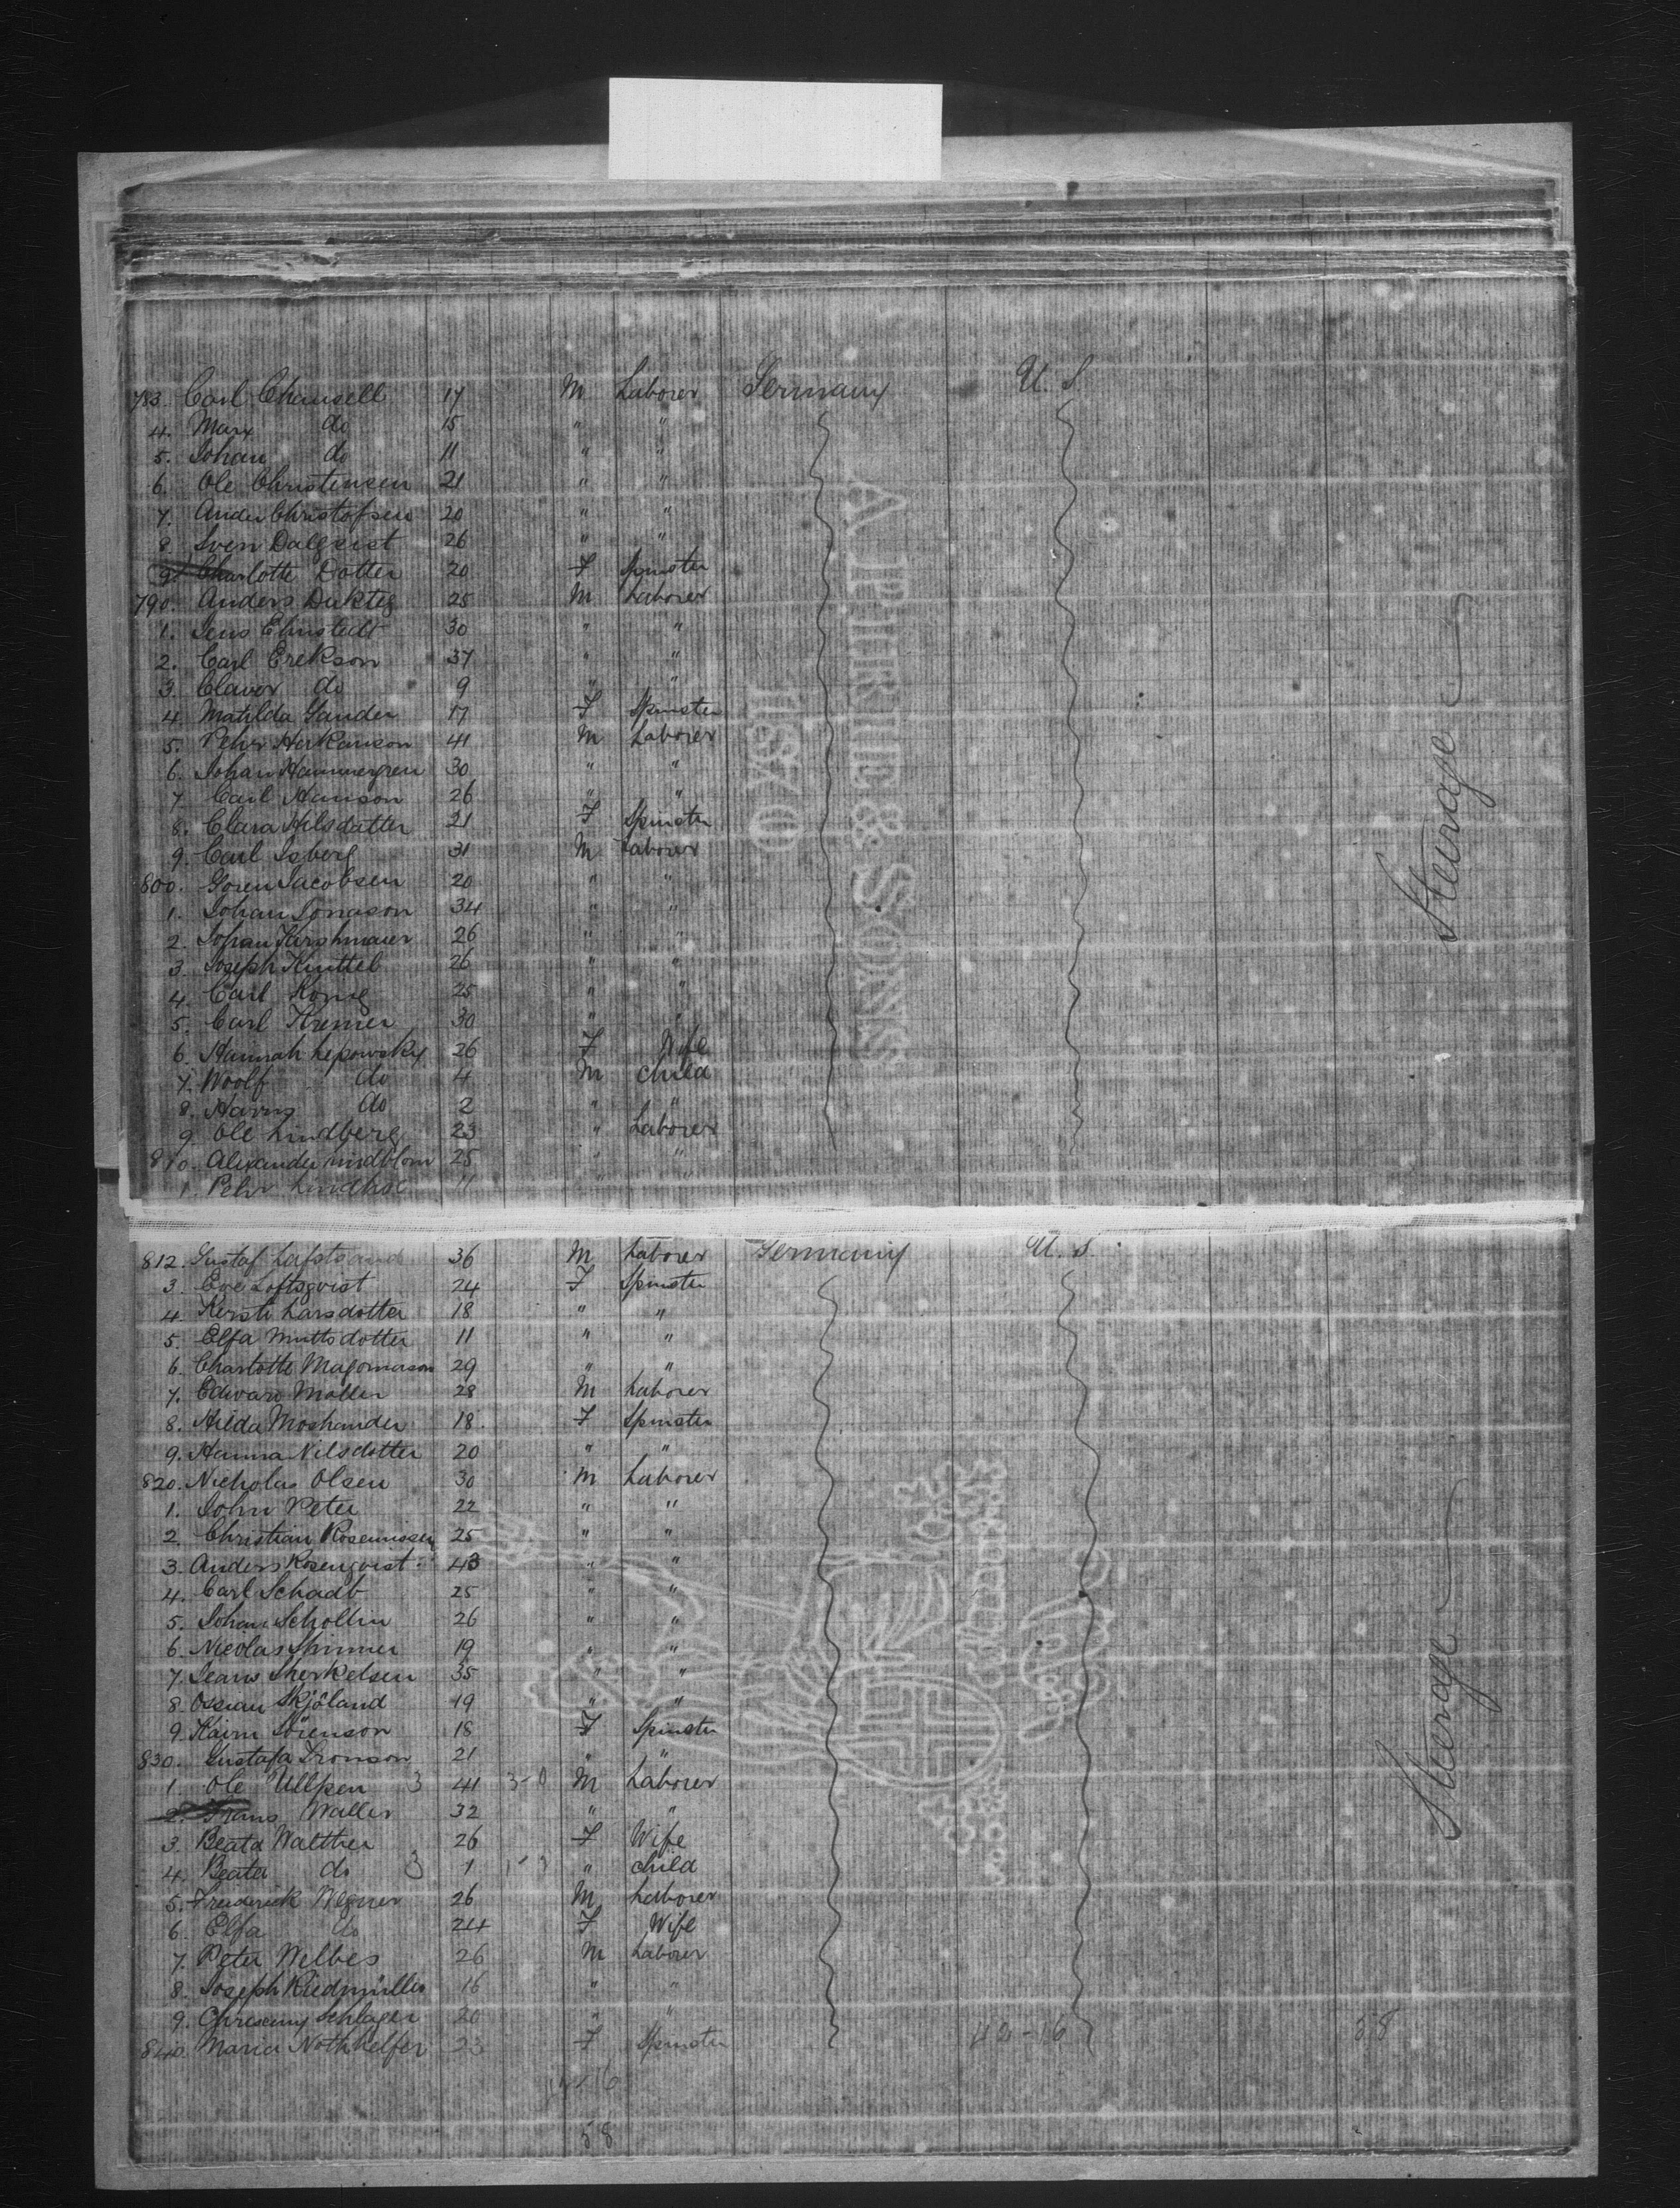 783. Carl Chansell 17 M Laborer Germany U. S.
4. Marx do 15 " "
5. Johan do 11 " "
6. Ole Christensen 21 " "
7. Ander Christofsen 20 " "
8. Sven Dalqvist 26 " "
9 Charlotte Dotter 20 F Spinster
790. Anders 25 M Laborer
1. Jens Ehnstedt 30 " "
2. Carl Erekson 37 " "
3. Clavor do 9 " "
4. Matilda Gander 17 F Spinster
5. Pehr Herkanson 41 M Laborer
6. Johan Hammergren 30 " "
7. Carl Hanson 26 " "
8. Clara Hilsdatter 21 F Spinster
9. Carl Isberg 31 M Laborer
800. Goren Jacobsen 20 " "
1. Johan Jonason 34 " "
2. Johan Kirshmaier 26 " "
3. Joseph Knittel 26 " "
4. Carl Konig 25 " "
5. Carl Kremer 30 " "
6. Hannah Lepowsky 26 F Wife
7. Woolf do 4 M Child
8. Harris do 2 " "
9. Ole Lindberg 23 " Laborer
810. Alexander Lindblom 25 " "
1. Pehr 11 " "
Steerage
A PIRIE & SONS
1870
812. Gustaf Lafstrand 36 M Laborer Germany U. S.
3. Eve Loftsqvist 24 F Spinster
4. Kersti Larsdotter 18 " "
5. Elfa Muttsdotter 11 " "
6. Charlotte Magomason 29 " "
7. Edward Moller 28 M Laborer
8. Hilda Moshander 18 F Spinster
9. Hanna Nilsdotter 20 " "
820. Nicholas Olsen 30 M Laborer
1. John Peter 22 " "
2. Christian 25 " "
3. Anders Rosenqvist 43 " "
4. Carl Schadt 25 " "
5. Johan Schollin 26 " "
6. Nicolas Shinner 19 " "
7. Sherkelsen 35 " "
8. Ossian Skjoland 19 " "
9. Karin Sörenson 18 F Spinster
830. Gustafa Tronson 21 " "
1. Ole Ullpen 3 41 M Laborer
2. Frans Waller 32 " "
3. Beata Walther 26 F Wife
4. Beata do 3 1 " child
5. Frederick Wegner 26 M Laborer
6. Elfa do 24 F Wife
7. Peter Welbes 26 M Laborer
8. Joseph Riedmüller 16 " "
9. Schlager 20 " "
840. Maria Nothhelfer 23 F Spinster
42-16 58
58
Steerage